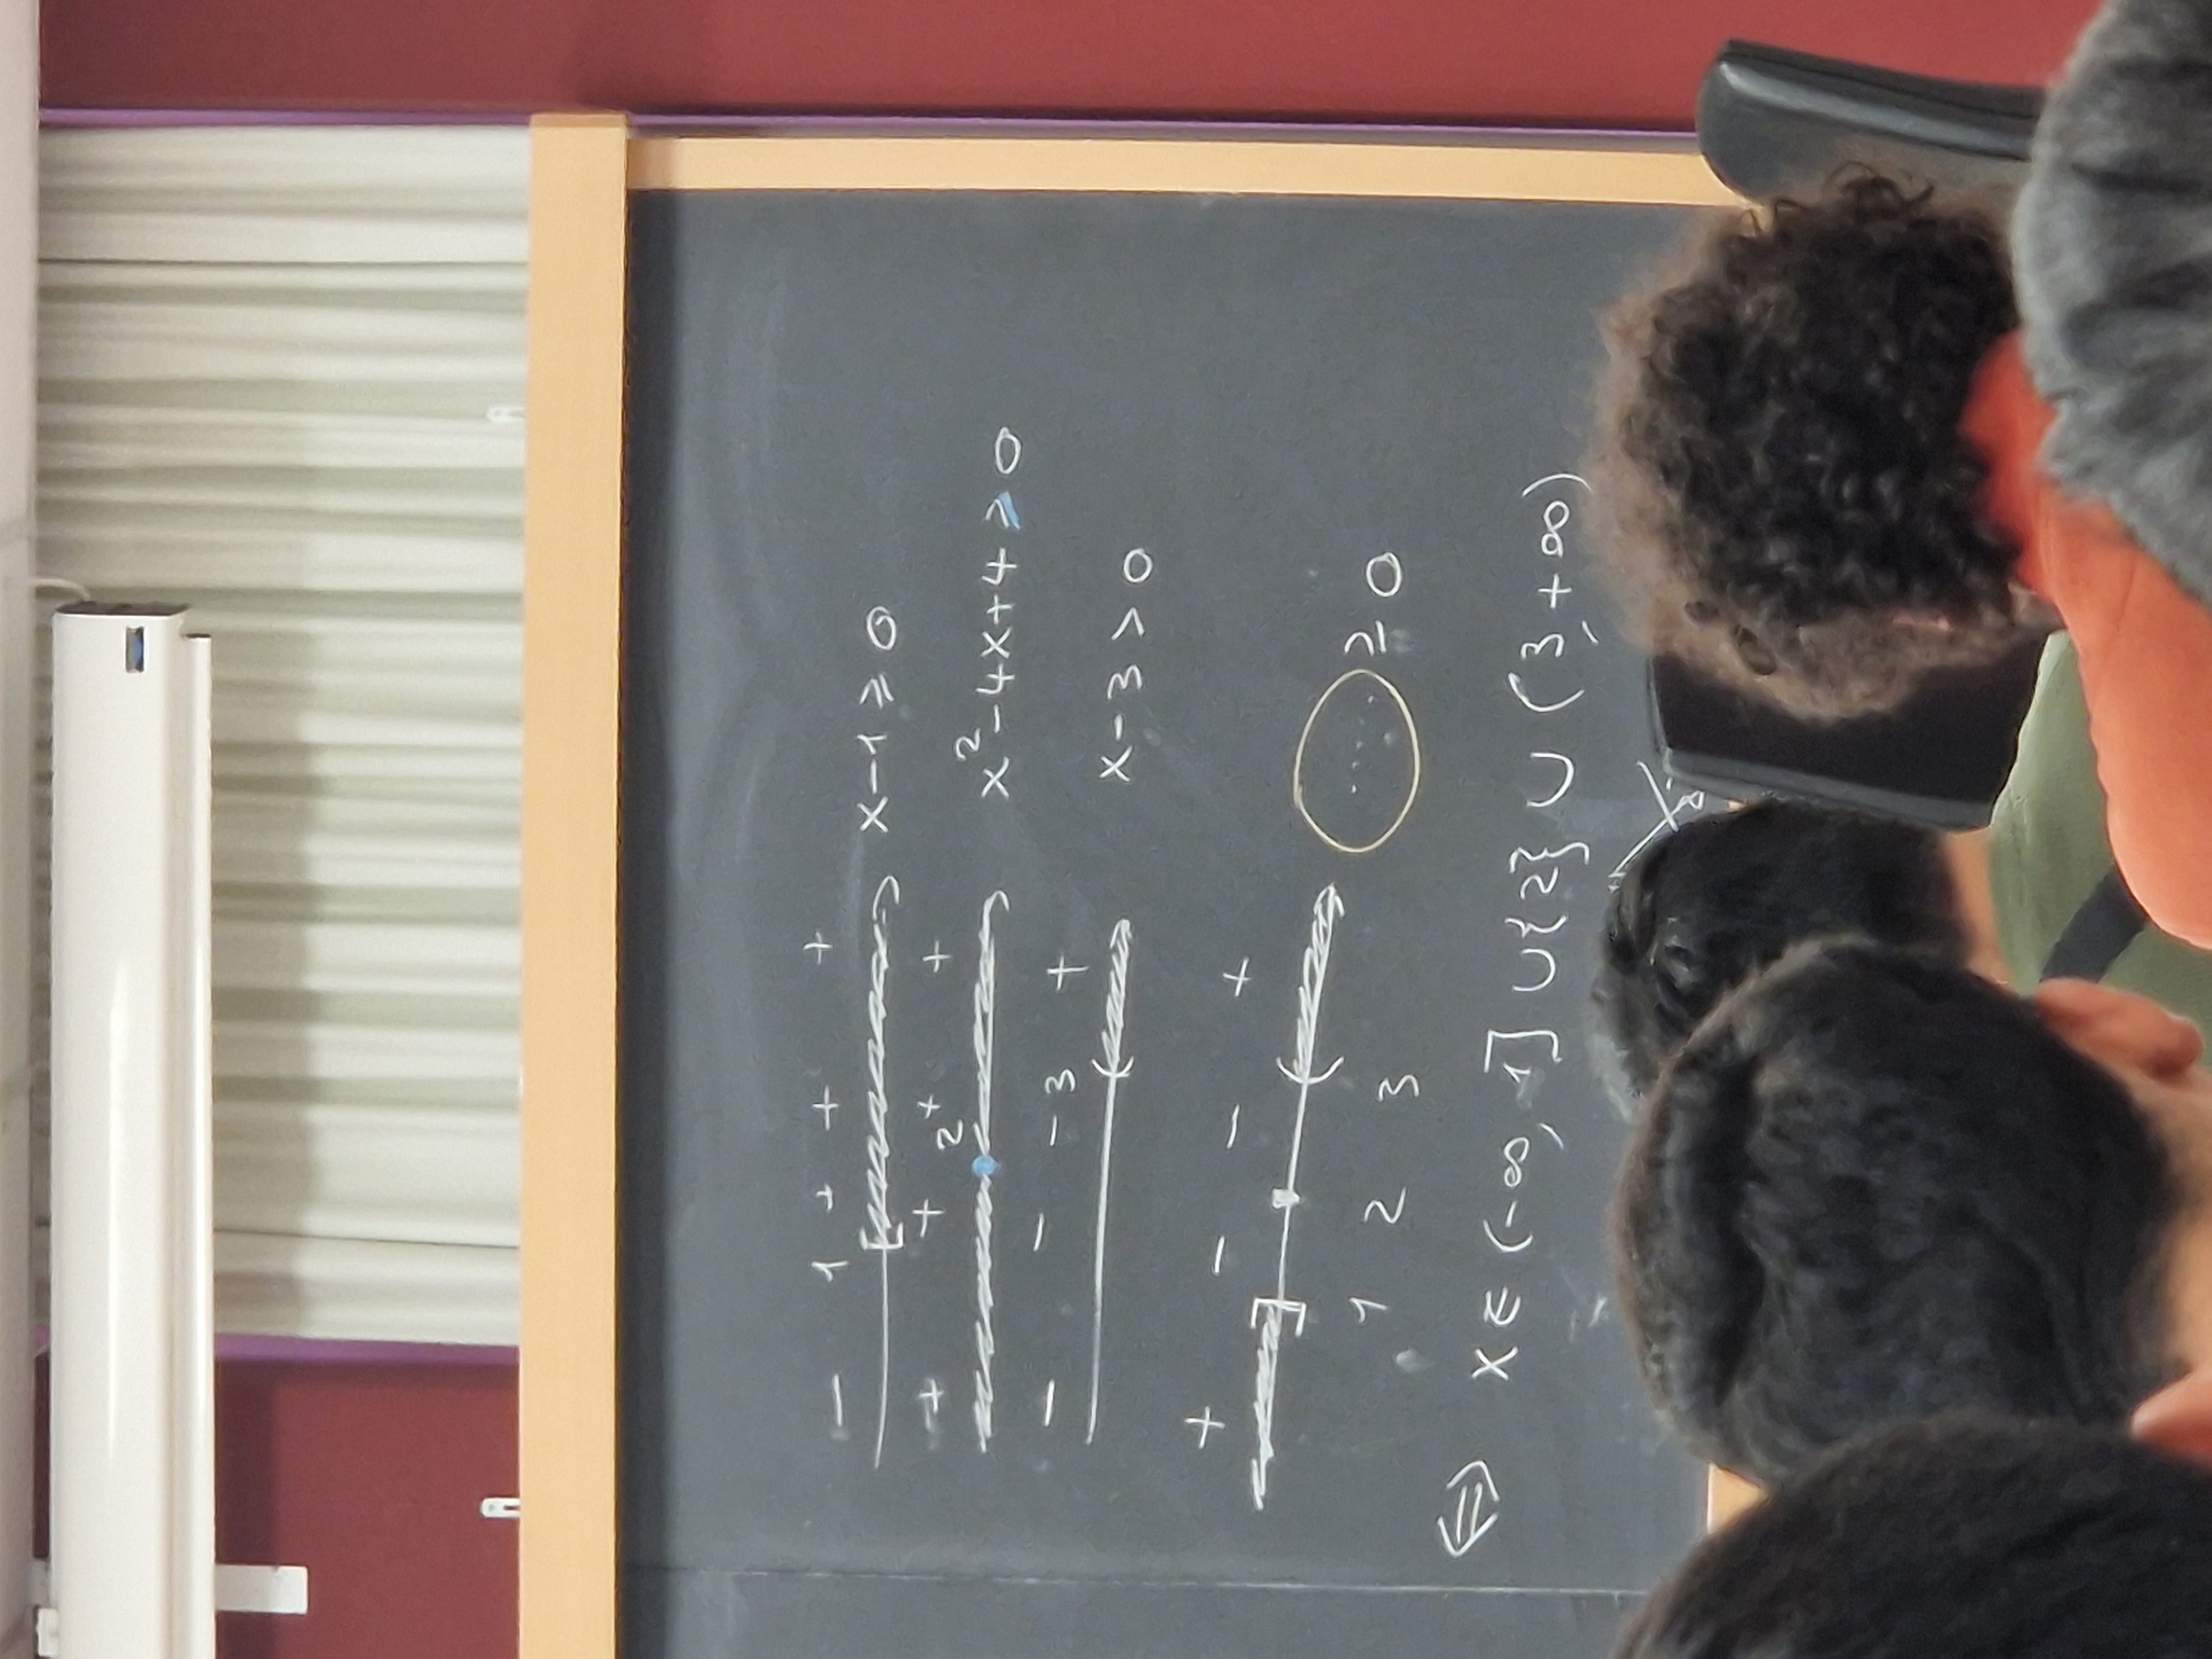 − 1 + + +
x-1 ≥ 0
+ + 2 + +
x²-4x+4 ≥ 0
− − − 3 +
x-3 > 0
+ − − +
1 2 3
..... ≥ 0
⇔ x ∈ (-∞, 1] ∪ {2} ∪ (3, +∞)